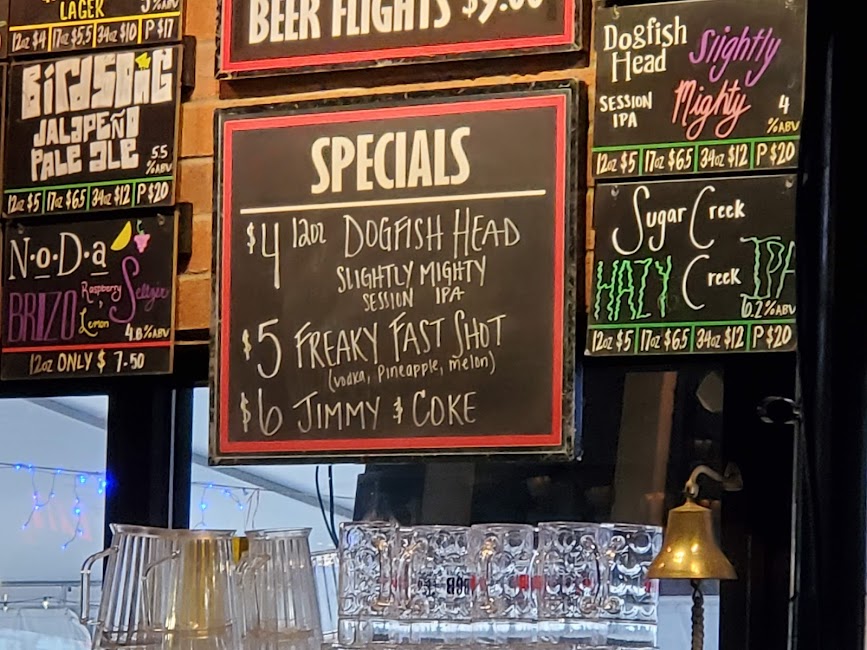 LAGER
12oz $4 17oz $5.5 34oz $10 P $17
BIRDSONG
JALAPEÑO
PALE ALE
5.5
%ABV
12oz $5 17oz $6.5 34oz $12 P $20
N·o·D·a
BRIZO Raspberry, Lemon Seltzer
4.8%ABV
12oz ONLY $7.50
BEER FLIGHTS $9.00
SPECIALS
$4 12oz DOGFISH HEAD
SLIGHTLY MIGHTY
SESSION IPA
$5 FREAKY FAST SHOT
(vodka, Pineapple, melon)
$6 JIMMY & COKE
Dogfish
Head
Slightly
Mighty
SESSION
IPA
4
%ABV
12oz $5 17oz $6.5 34oz $12 P $20
Sugar Creek
HAZY Creek IPA
6.2%ABV
12oz $5 17oz $6.5 34oz $12 P $20